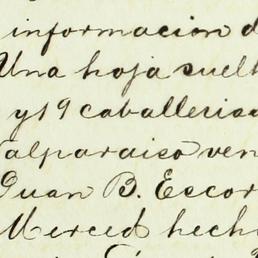 informacion d
Una hoja suelt
y 19 caballeriso
Valparaiso ven
Juan B. Escor
Merced hech